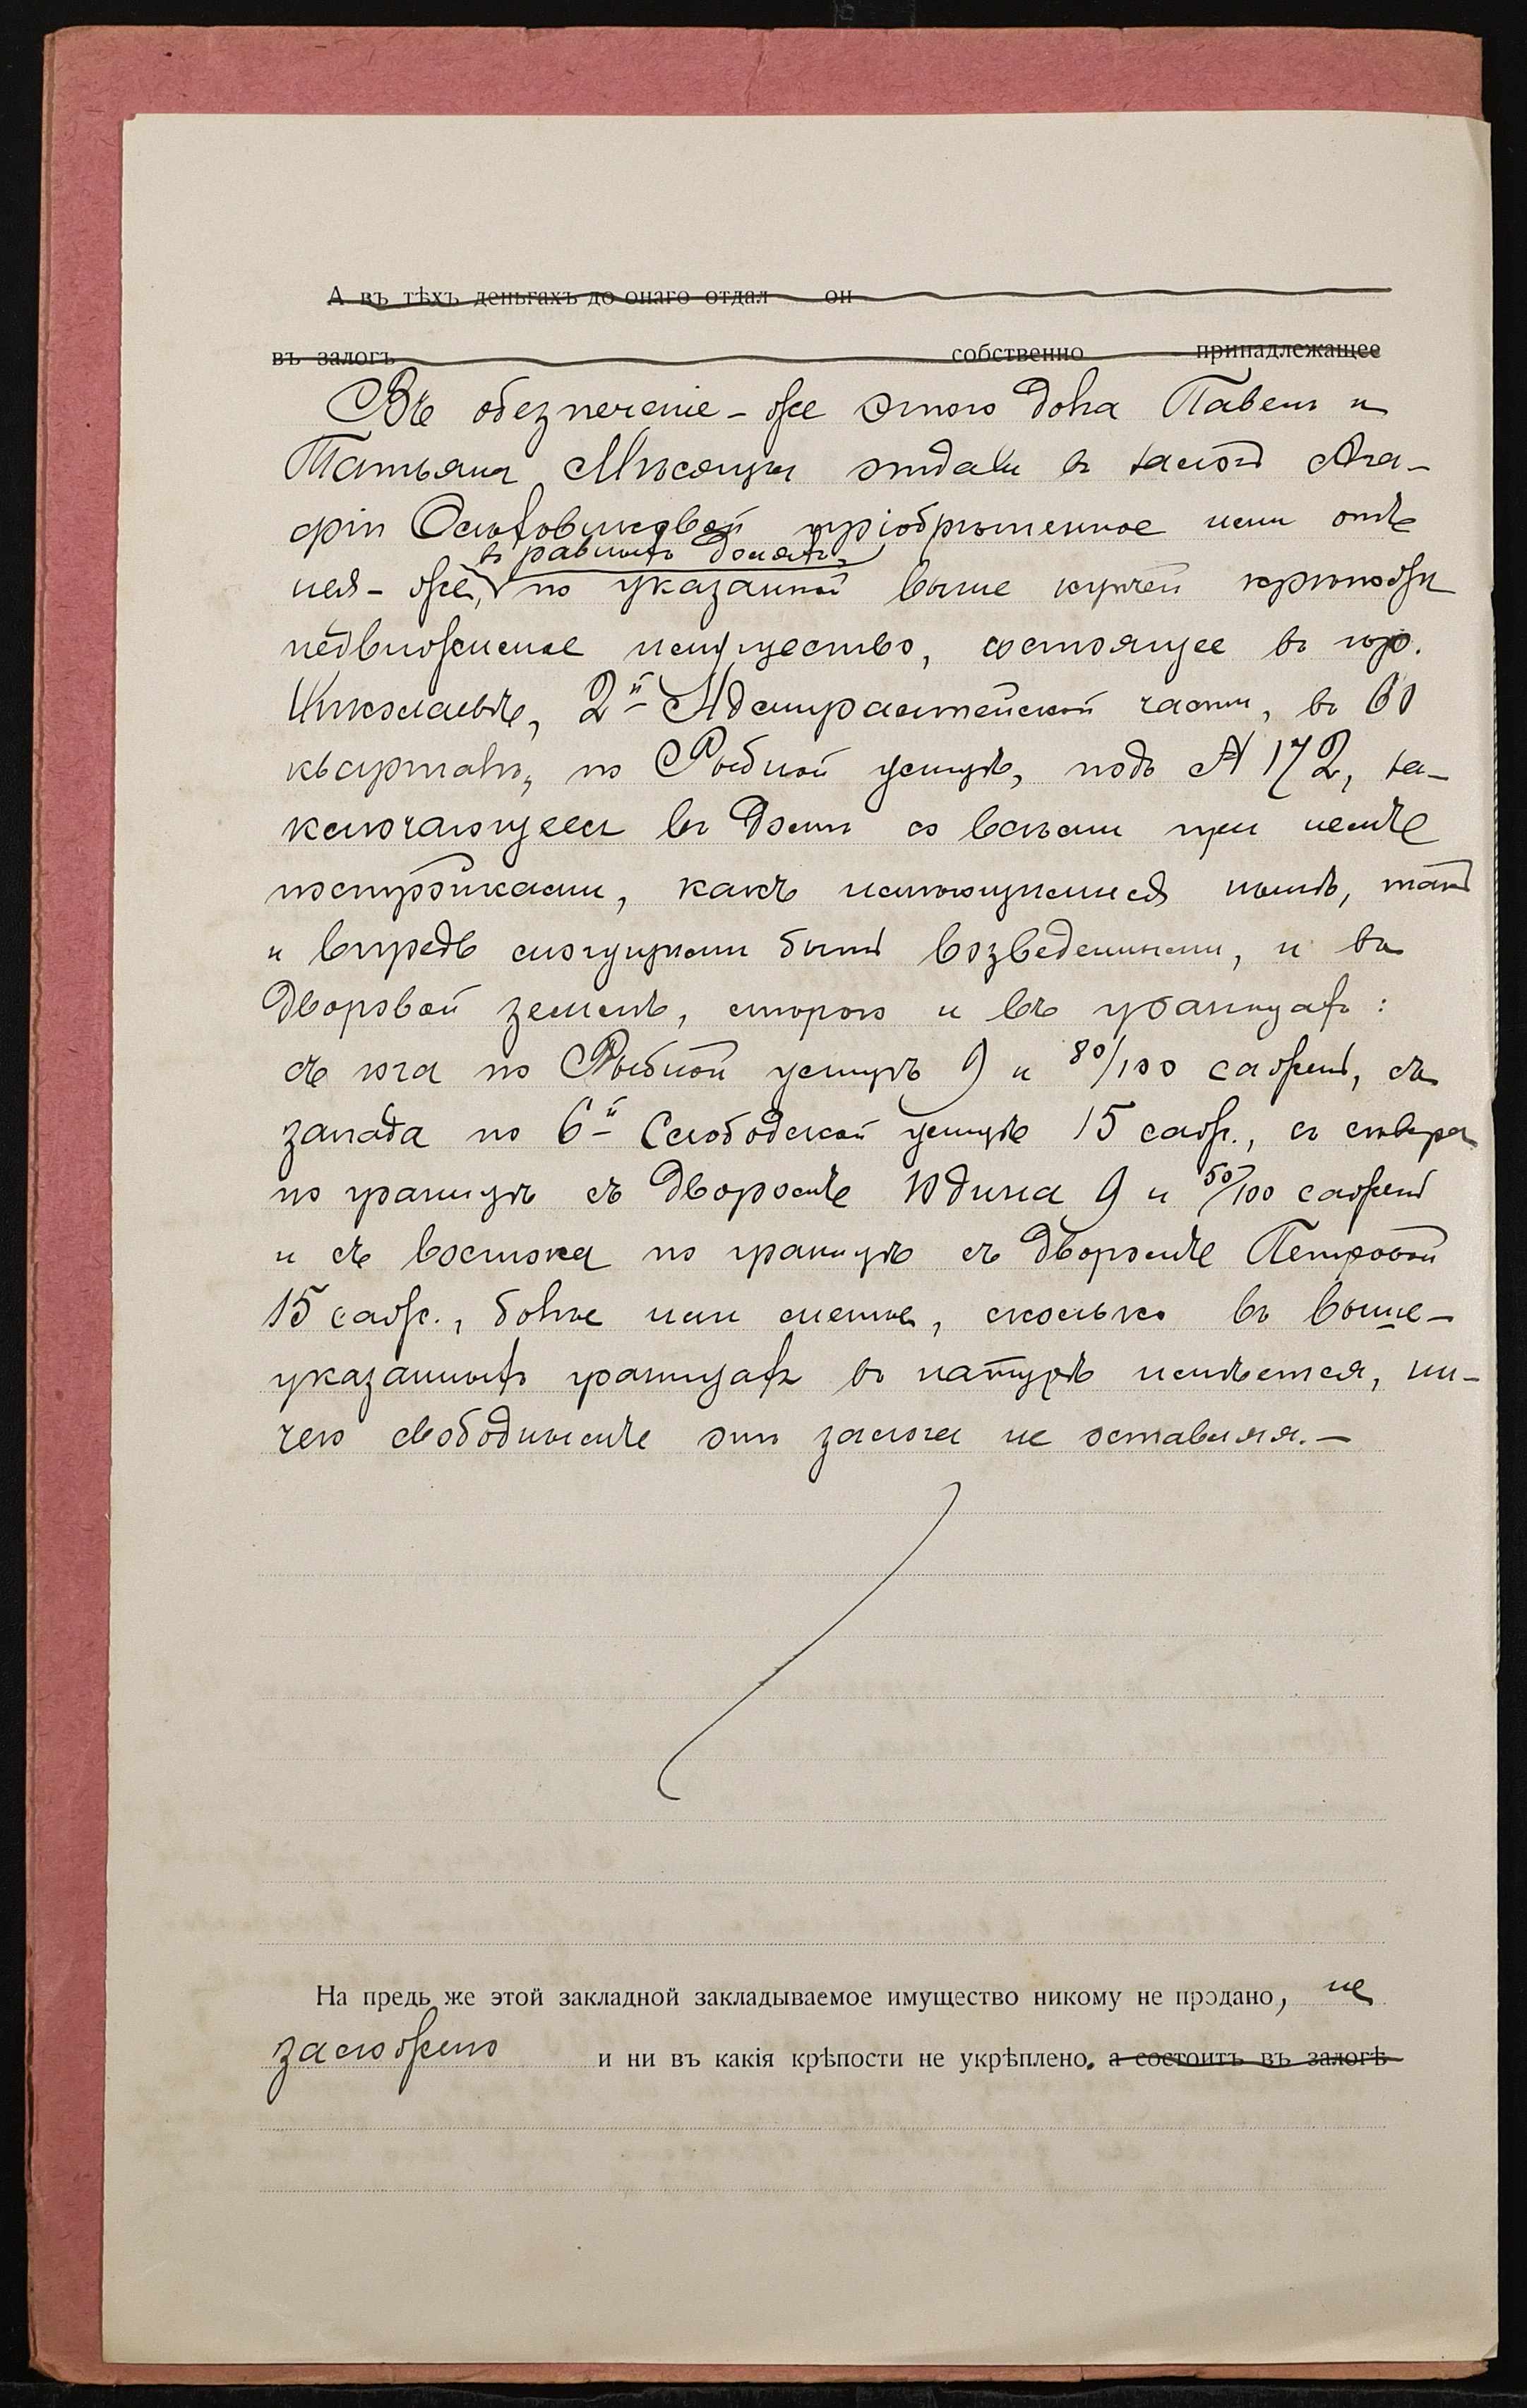 А въ тѣхъ деньгахъ до онаго отдал он
въ залогъ собственно принадлежащее
Въ обезпеченіе-же этого долга Павелъ и
Татьяна Мѣсяцы отдали въ залогъ Ага-
фіи
въ равныхъ доляхъ
нея-же, по указанной выше купчей крѣпости
недвижимое имущество, состоящее въ гор.
Николаевѣ, 2й Адмиралтейской части, въ 60
кварталѣ, по Рыбной улицѣ, подъ № 172, за-
ключающееся въ домѣ со всѣми при немъ
постройками, какъ имѣющимися нынѣ, такъ
и впредь могущими быть возведенными, и въ
дворовой землѣ, мѣрою и въ границахъ:
съ юга по Рыбной улицѣ 9 и 80/100 сажень, съ
запада по 6й Слободской улицѣ 15 саж., съ сѣвера
по границѣ съ дворомъ Юдина 9 и 50/100 сажень
и съ востока по границѣ съ дворомъ Петровой
15 саж., болѣе или менѣе, сколько въ выше-
указанныхъ границахъ въ натурѣ имѣется, ни-
чего свободнымъ отъ залога не оставляя.—
На предь же этой закладной закладываемое имущество никому не продано, не
заложено и ни въ какія крѣпости не укрѣплено. а состоитъ въ залогѣ